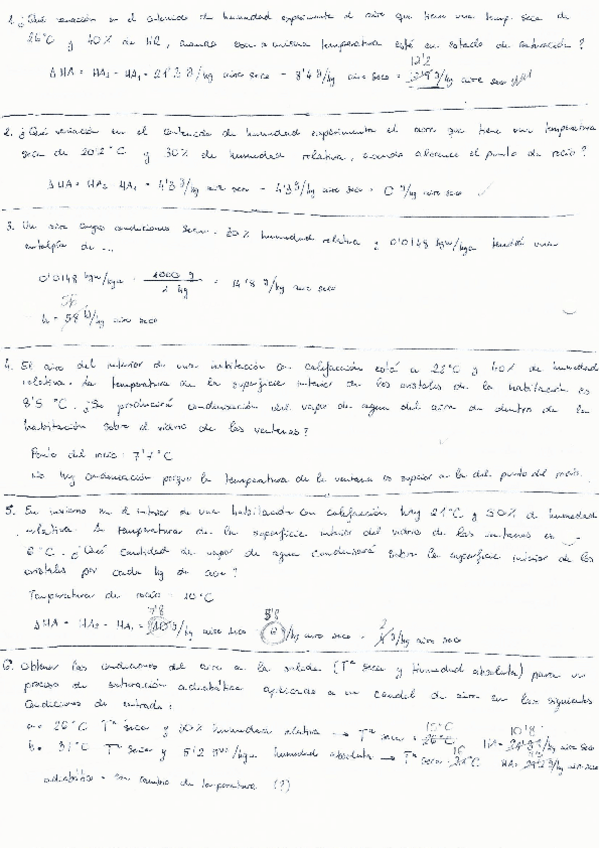 1. ¿Qué variación en el contenido de humedad experimenta el aire que tiene una temp. seca de
26°C y 40% de HR, cuando con la misma temperatura está en estado de saturación?
12'2
Δ HA = HA2 - HA1 = 21'2 g/kg aire seco - 8'4 g/kg aire seco = g/kg aire seco
2. ¿Qué variación en el contenido de humedad experimenta el aire que tiene una temperatura
seca de 20'2°C y 30% de humedad relativa, cuando alcance el punto de rocío?
Δ HA = HA2 - HA1 = 4'3 g/kg aire seco - 4'3 g/kg aire seco = 0 g/kg aire seco
3. Un aire cuyas condiciones sean: % humedad relativa y 0'0148 kgw/kga tendrá una
entalpía de ...
0'0148 kgw/kga · 1000 g / 1 kg = 14'8 g/kg aire seco
h = 58 kJ/kg aire seco
4. El aire del interior de una habitación con calefacción está a °C y 40% de humedad
relativa. La temperatura de la superficie interior de los cristales de la habitación es
8'5 °C. ¿Se producirá condensación del vapor de agua del aire de dentro de la
habitación sobre el vidrio de las ventanas?
Punto del rocío: 7'7°C
No hay condensación porque la temperatura de la ventana es superior a la del punto del rocío.
5. En invierno en el interior de una habitación con calefacción hay 21°C y 50% de humedad
relativa. La temperatura de la superficie interior del vidrio de las ventanas es
6°C. ¿Qué cantidad de vapor de agua condensará sobre la superficie interior de los
cristales por cada kg de aire?
Temperatura de rocío = 10°C
7'8 5'8
Δ HA = HA2 - HA1 = g/kg aire seco - g/kg aire seco = g/kg aire seco
6. Obtener las condiciones del aire en la salida (Tª seca y Humedad absoluta) para un
proceso de saturación adiabática aplicado a un caudal de aire en las siguientes
condiciones de entrada:
15°C 10'8
a. 26°C Tª seca y % humedad relativa → Tª seca = HA = g/kg aire seco
b. 31°C Tª seca y 5'2 g/kga humedad absoluta → Tª seca = °C HA = g/kg aire seco
adiabático = sin cambio de temperatura (?)